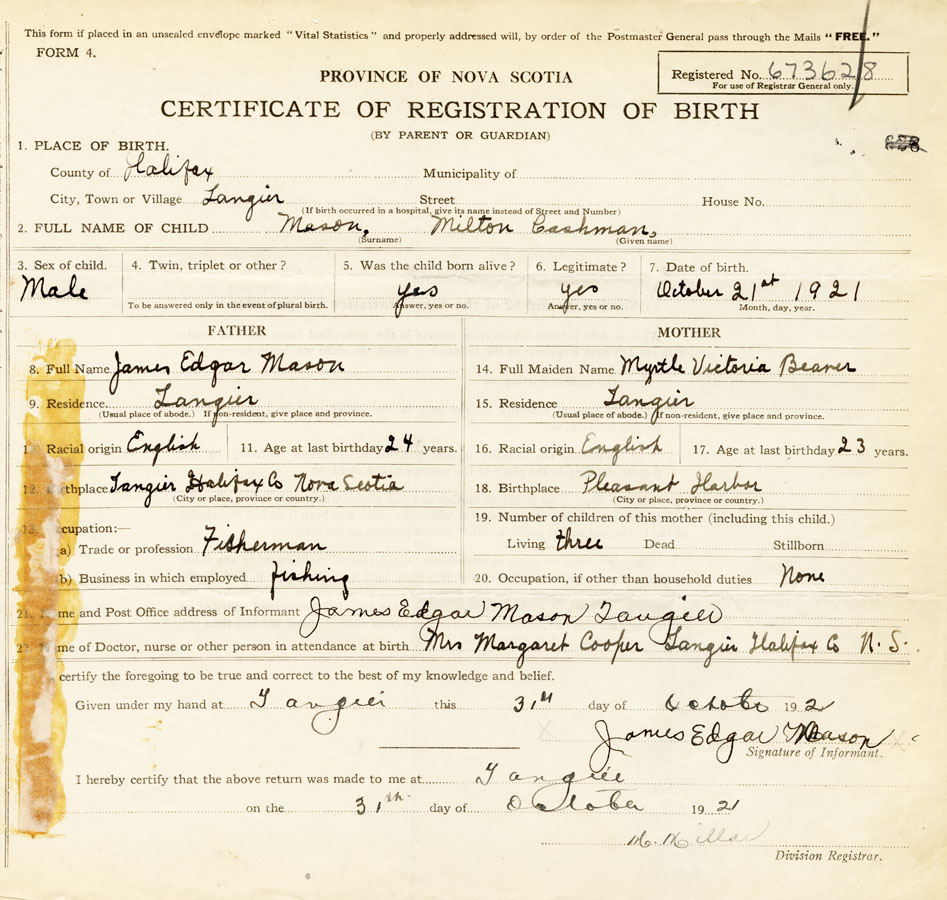 This form if placed in an unsealed envelope marked "Vital Statistics" and properly addressed will, by order of the Postmaster General pass through the Mails "FREE."
FORM 4.
PROVINCE OF NOVA SCOTIA
Registered No. 673628
For use of Registrar General only.
CERTIFICATE OF REGISTRATION OF BIRTH
(BY PARENT OR GUARDIAN)
1. PLACE OF BIRTH.
County of Halifax Municipality of
City, Town or Village Tangier Street House No.
(If birth occurred in a hospital, give its name instead of Street and Number)
2. FULL NAME OF CHILD Mason, Milton Cashman,
(Surname) (Given name)
3. Sex of child. 4. Twin, triplet or other? 5. Was the child born alive? 6. Legitimate? 7. Date of birth.
Male yes yes October 21st 1921
To be answered only in the event of plural birth. Answer, yes or no. Answer, yes or no. Month, day, year.
FATHER MOTHER
8. Full Name James Edgar Mason 14. Full Maiden Name Myrtle Victoria Beaver
9. Residence Tangier 15. Residence Tangier
(Usual place of abode.) If non-resident, give place and province. (Usual place of abode.) If non-resident, give place and province.
Racial origin English 11. Age at last birthday 24 years. 16. Racial origin English 17. Age at last birthday 23 years.
12. thplace Tangier Halifax Co Nova Scotia 18. Birthplace Pleasant Harbor
(City or place, province or country.) (City or place, province or country.)
13. cupation:— 19. Number of children of this mother (including this child.)
a) Trade or profession Fisherman Living three Dead Stillborn
b) Business in which employed fishing 20. Occupation, if other than household duties None
21. me and Post Office address of Informant James Edgar Mason Tangier
me of Doctor, nurse or other person in attendance at birth Mrs Margaret Cooper Tangier Halifax Co N.S.
certify the foregoing to be true and correct to the best of my knowledge and belief.
Given under my hand at Tangier this 31st day of October 1921
James Edgar Mason
Signature of Informant.
I hereby certify that the above return was made to me at Tangier
on the 31th day of October 1921
Division Registrar.